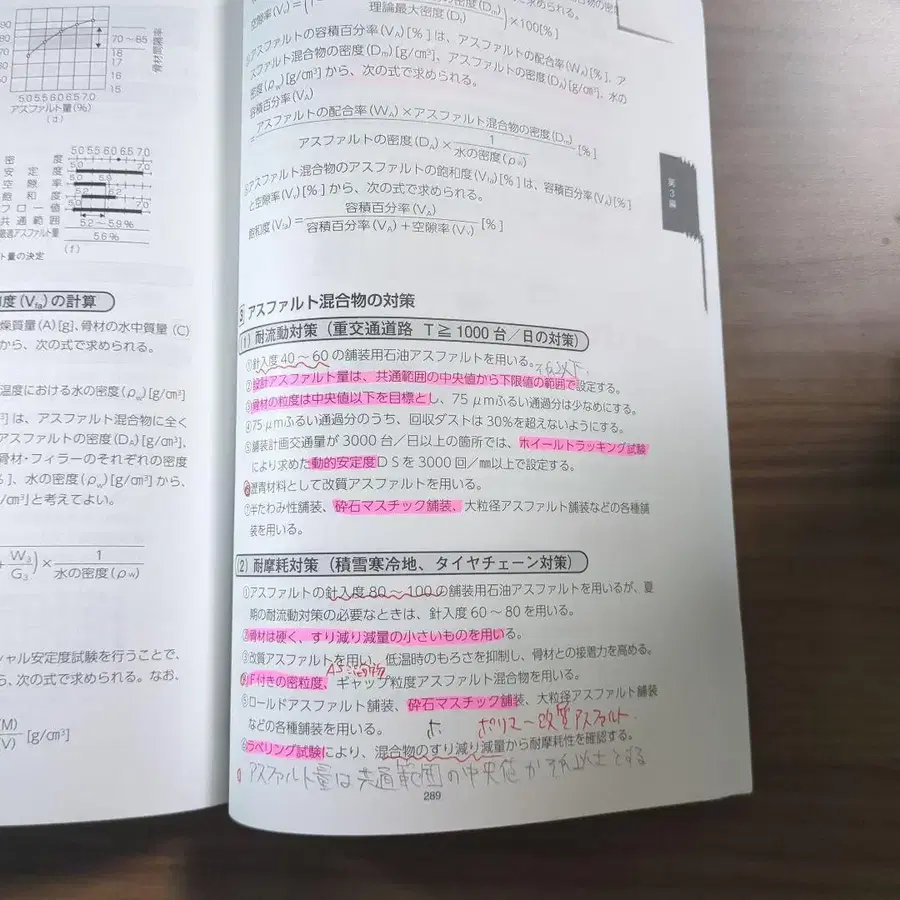 90
80
70
60
50
70〜85
18
17
16
15
骨材間隙率
5.0 5.5 6.0 6.5 7.0
アスファルト量(%)
(d)
5.0 5.5 6.0 6.5 7.0
密度
安定度
7.0
空隙率
飽和度
フロー値
7.0
共通範囲
5.2〜5.9%
最適アスファルト量
5.6%
(f)
ト量の決定
和度(Vfa)の計算
燥質量(A)[g]、骨材の水中質量(C)
から、次の式で求められる。
温度における水の密度(ρw)[g/cm³]
]は、アスファルト混合物に全く
アスファルトの密度(DA)[g/cm³]、
骨材・フィラーのそれぞれの密度
]、水の密度(ρw)[g/cm³]から、
/cm³]と考えてよい。
+ W3/G3)× 1/水の密度(ρw)
シャル安定度試験を行うことで、
ら、次の式で求められる。なお、
(M)
(V) [g/cm³]
空隙率(Vv)=
理論最大密度(Dt) ×100[%]
アスファルトの容積百分率(VA)[%]は、アスファルトの配合率(WA)[%]、ア
スファルト混合物の密度(Dm)[g/cm³]、アスファルトの密度(DA)[g/cm³]、水の
密度(ρw)[g/cm³]から、次の式で求められる。
容積百分率(VA)
=アスファルトの配合率(WA)×アスファルト混合物の密度(Dm)
アスファルトの密度(DA)× 1/水の密度(ρw) [%]
アスファルト混合物のアスファルトの飽和度(Vfa)[%]は、容積百分率(VA)[%]
と空隙率(Vv)[%]から、次の式で求められる。
飽和度(Vfa)= 容積百分率(VA)/容積百分率(VA)+空隙率(Vv) [%]
第3編
3 アスファルト混合物の対策
(1) 耐流動対策(重交通道路 T≧1000台/日の対策)
①針入度40〜60の舗装用石油アスファルトを用いる。
②設計アスファルト量は、共通範囲の中央値から下限値の範囲で設定する。
③骨材の粒度は中央値以下を目標とし、75μmふるい通過分は少なめにする。
④75μmふるい通過分のうち、回収ダストは30%を超えないようにする。
⑤舗装計画交通量が3000台/日以上の箇所では、ホイールトラッキング試験
により求めた動的安定度DSを3000回/mm以上で設定する。
⑥瀝青材料として改質アスファルトを用いる。
⑦半たわみ性舗装、砕石マスチック舗装、大粒径アスファルト舗装などの各種舗
装を用いる。
(2) 耐摩耗対策(積雪寒冷地、タイヤチェーン対策)
①アスファルトの針入度80〜100の舗装用石油アスファルトを用いるが、夏
期の耐流動対策の必要なときは、針入度60〜80を用いる。
②骨材は硬く、すり減り減量の小さいものを用いる。
③改質アスファルトを用い、低温時のもろさを抑制し、骨材との接着力を高める。
AS混合物
④F付きの密粒度、ギャップ粒度アスファルト混合物を用いる。
⑤ロールドアスファルト舗装、砕石マスチック舗装、大粒径アスファルト舗装
などの各種舗装を用いる。
ポリマー改質アスファルト
⑥ラベリング試験により、混合物のすり減り減量から耐摩耗性を確認する。
アスファルト量は共通範囲の中央値かそれ以上とする
289